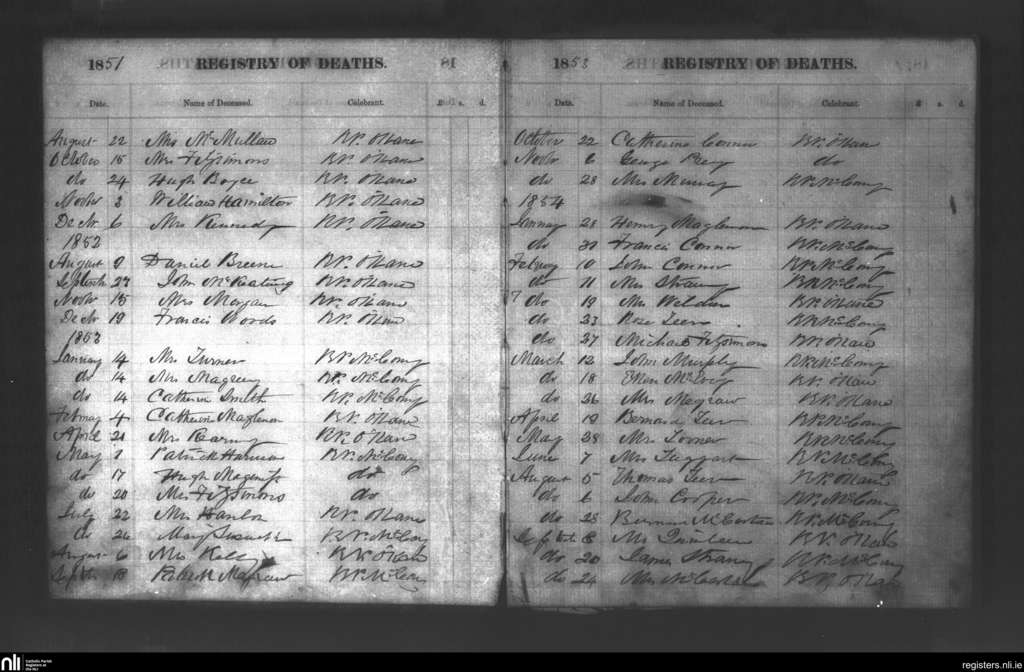 1851 REGISTRY OF DEATHS. 18
Date. Name of Deceased. Celebrant. £ s. d.
August 22 Mrs McMullan RP. O'Kane
October 15 Mrs Fitzsimons RP. O'Kane
do 24 Hugh Boyce RP. O'Kane
Novbr 3 William Hamilton RP. O'Kane
Decbr. 6 Mrs Kennedy RP. O'Kane
1852
August 9 Daniel Breene RP. O'Kane
Septemb 27 John McKeating RP. O'Kane
Novbr 15 Mrs Morgan RP. O'Kane
Decbr 19 Francis Woods RP. O'Kane
1853
January 4 Mr Turner RP. McComy
do 14 Mrs Magreevy RP. McComy
do 14 Catherin Smith RP. McComy
February 4 Catherin Maglenon RP. O'Kane
April 21 Mrs Kearney RP. O'Kane
May 1 Patrick Hanna RP. McComy
do 17 Hugh Magenis do
do 20 Mrs Fitzsimons do
July 22 Mrs Hanlon RP. O'Kane
do 26 Mary RP. McComy
August 6 Mrs Kelly RP. O'Kane
Septbr 18 Patrick Magraw RP. McComy
1853 REGISTRY OF DEATHS.
Date. Name of Deceased. Celebrant. £ s. d.
October 22 Catherine Connor RP. O'Kane
Novbr 6 George do
do 28 Mrs Murray RP. McComy
1854
January 28 Henry Maglennon RP. O'Kane
do 31 Francis Connor RP. McComy
February 10 John Connor RP. McComy
do 11 Mrs Strany RP. McComy
do 19 Mrs Weldon RP. O'Kane
do 23 Rose Teer RP. McComy
do 27 Michael Fitzsimons RP. O'Kane
March 12 John Murphy RP. McComy
do 18 Ellen McEvoy RP. O'Kane
do 26 Mrs Magraw RP. O'Kane
April 19 Bernard Teer RP. McComy
May 28 Mrs Torner RP. McComy
June 7 Mrs Taggart RP. McComy
August 5 Thomas Teer RP. O'Kane
do 6 John Cooper RP. McComy
do 28 Bernard McCartan RP. McComy
Septbr 8 Mr Quinlan RP. O'Kane
do 20 James Strany RP. McComy
do 24 Mrs McCartan RP. O'Kane
nli Catholic Parish
Registers at
the NLI
registers.nli.ie